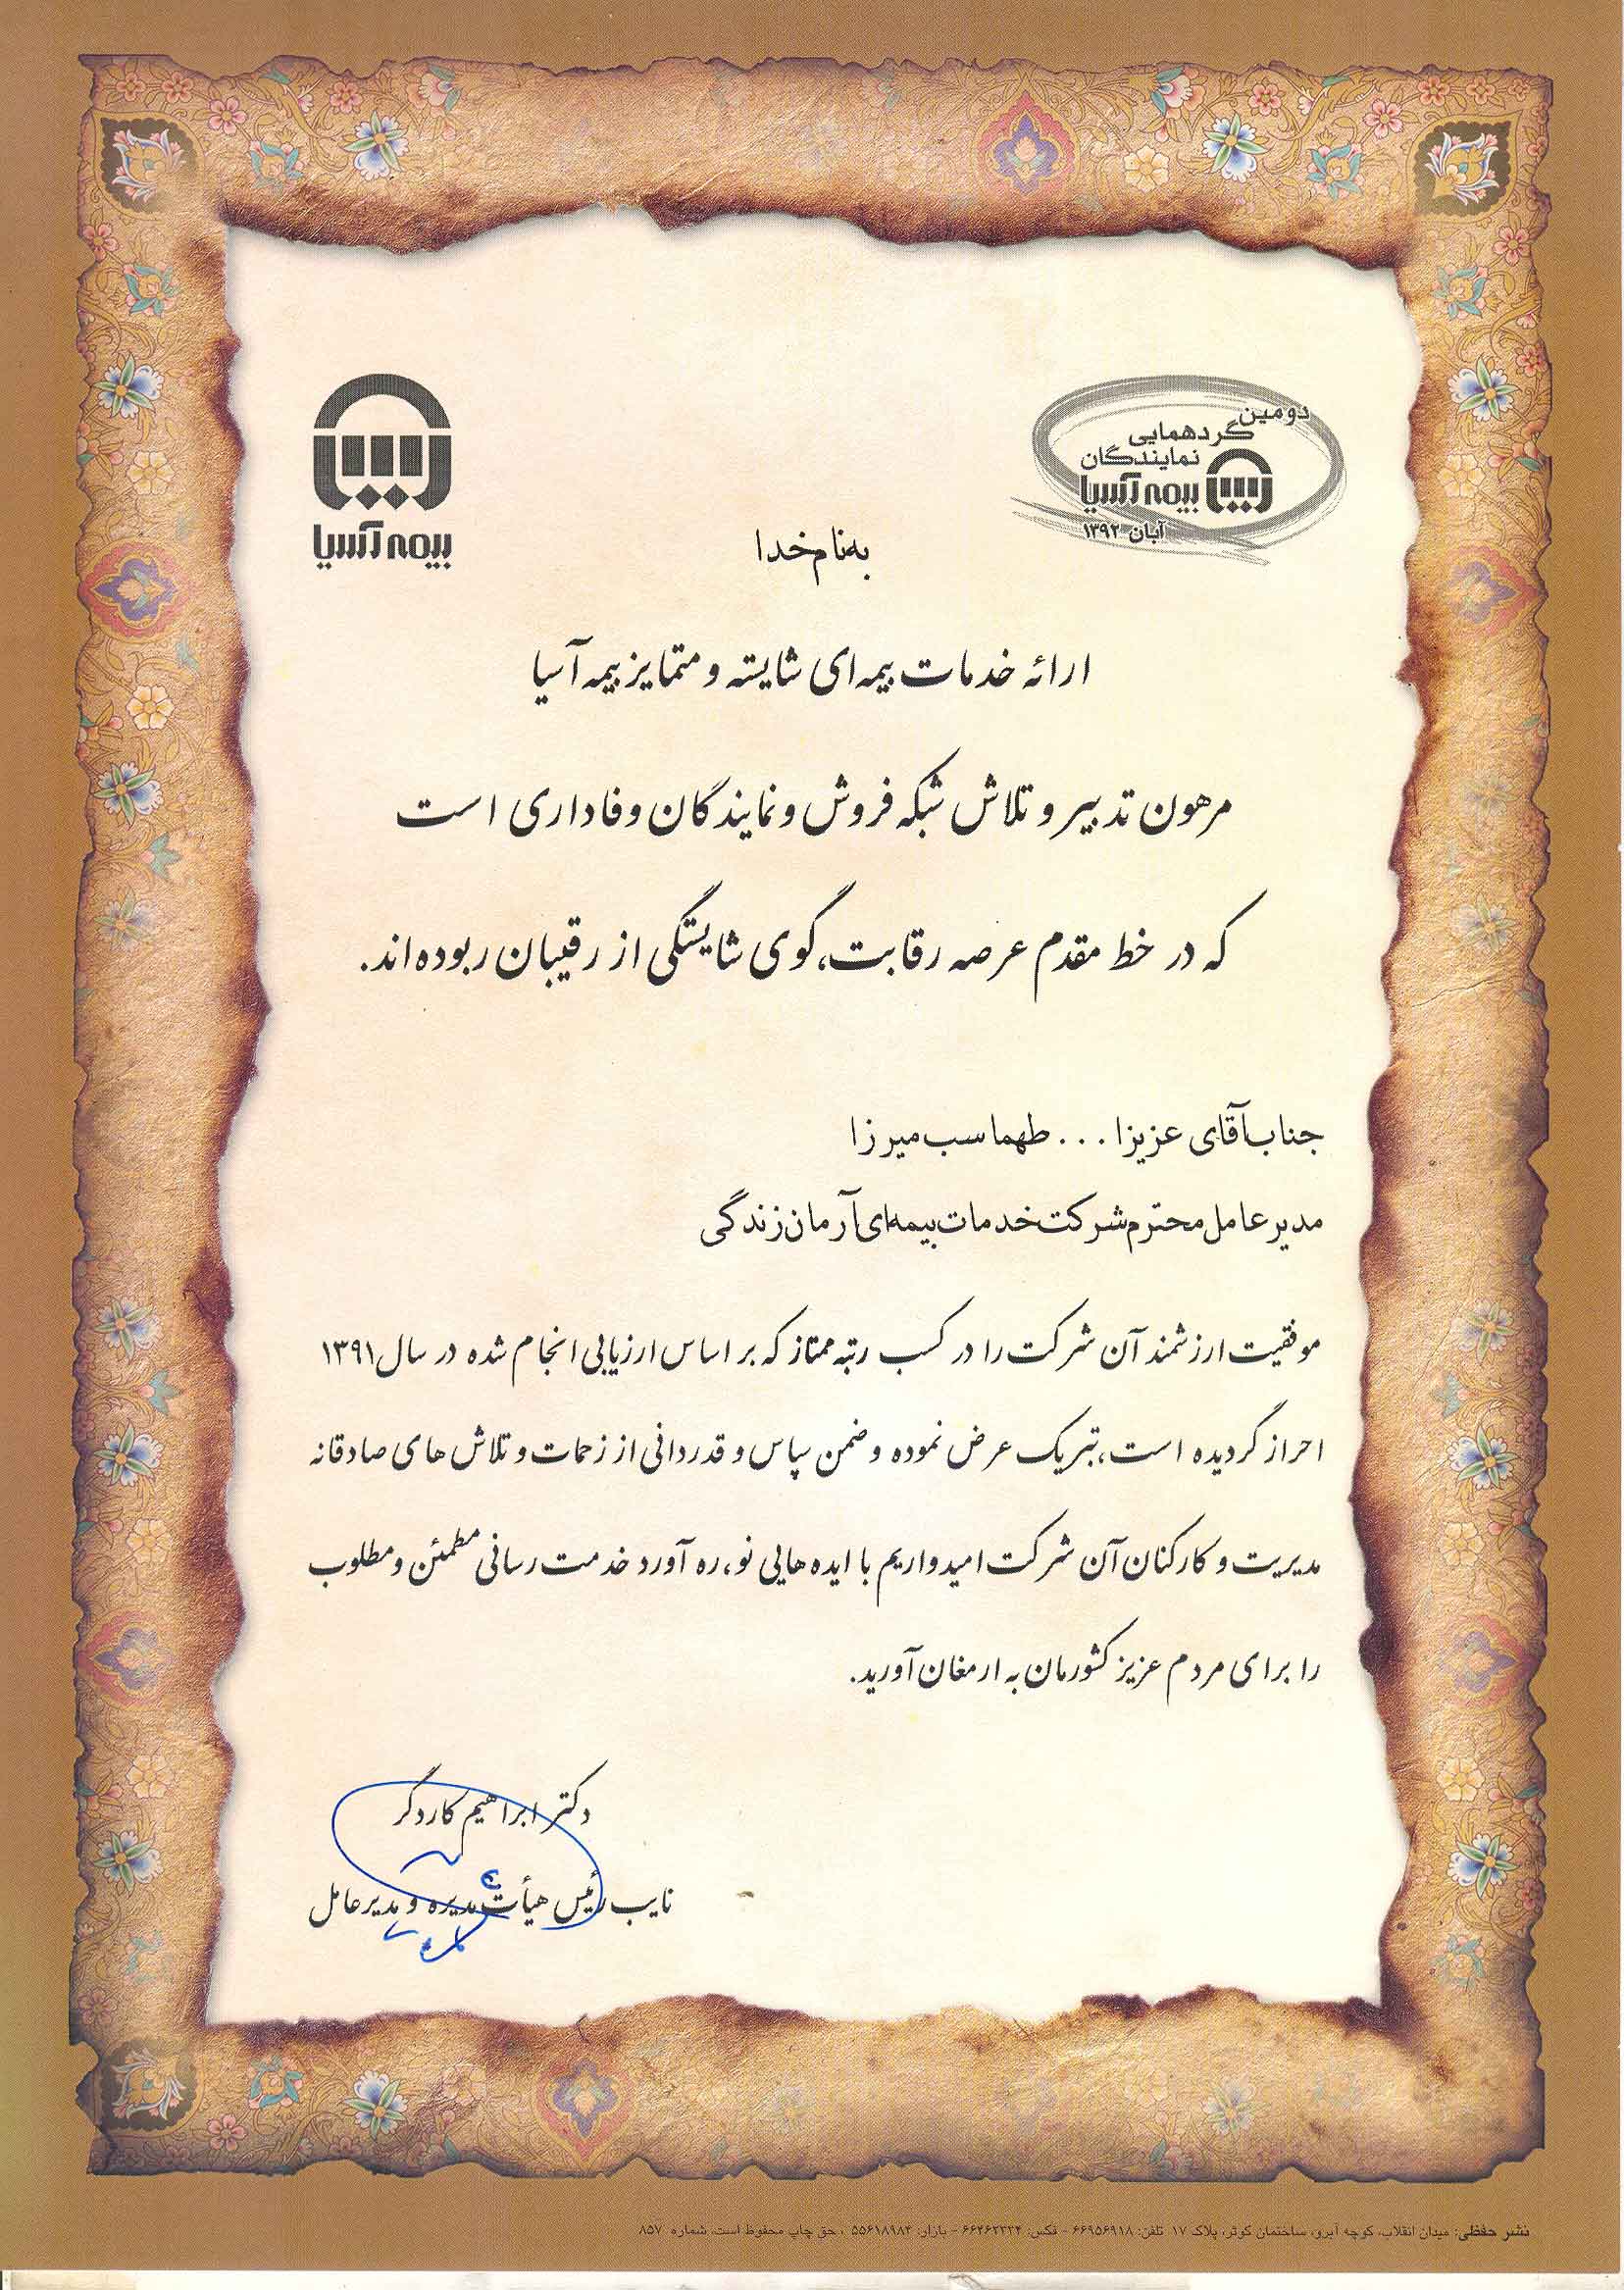 دومین
گردهمایی
نمایندگان
بیمه آسیا
آبان ۱۳۹۲
بیمه آسیا
به نام خدا
ارائه خدمات بیمه ای شایسته و متمایز بیمه آسیا
مرهون تدبیر و تلاش شبکه فروش و نمایندگان وفاداری است
که در خط مقدم عرصه رقابت، گوی شایستگی از رقیبان ربوده اند.
جناب آقای عزیزا... طهماسب میرزا
مدیر عامل محترم شرکت خدمات بیمه ای آرمان زندگی
موفقیت ارزشمند آن شرکت را در کسب رتبه ممتاز که بر اساس ارزیابی انجام شده در سال ۱۳۹۱
احراز گردیده است، تبریک عرض نموده و ضمن سپاس و قدردانی از زحمات و تلاش های صادقانه
مدیریت و کارکنان آن شرکت امیدواریم با ایده هایی نو، ره آورد خدمت رسانی مطمئن و مطلوب
را برای مردم عزیز کشورمان به ارمغان آورید.
دکتر ابراهیم کاردگر
نایب رئیس هیأت مدیره و مدیرعامل
نشر حفظی: میدان انقلاب، کوچه آبرو، ساختمان کوثر، پلاک ۱۷ تلفن: ۶۶۹۵۶۹۱۸ - فکس: ۶۶۴۶۲۳۳۴ - بازار: ۵۵۶۱۸۹۸۴ ، حق چاپ محفوظ است، شماره ۸۵۷